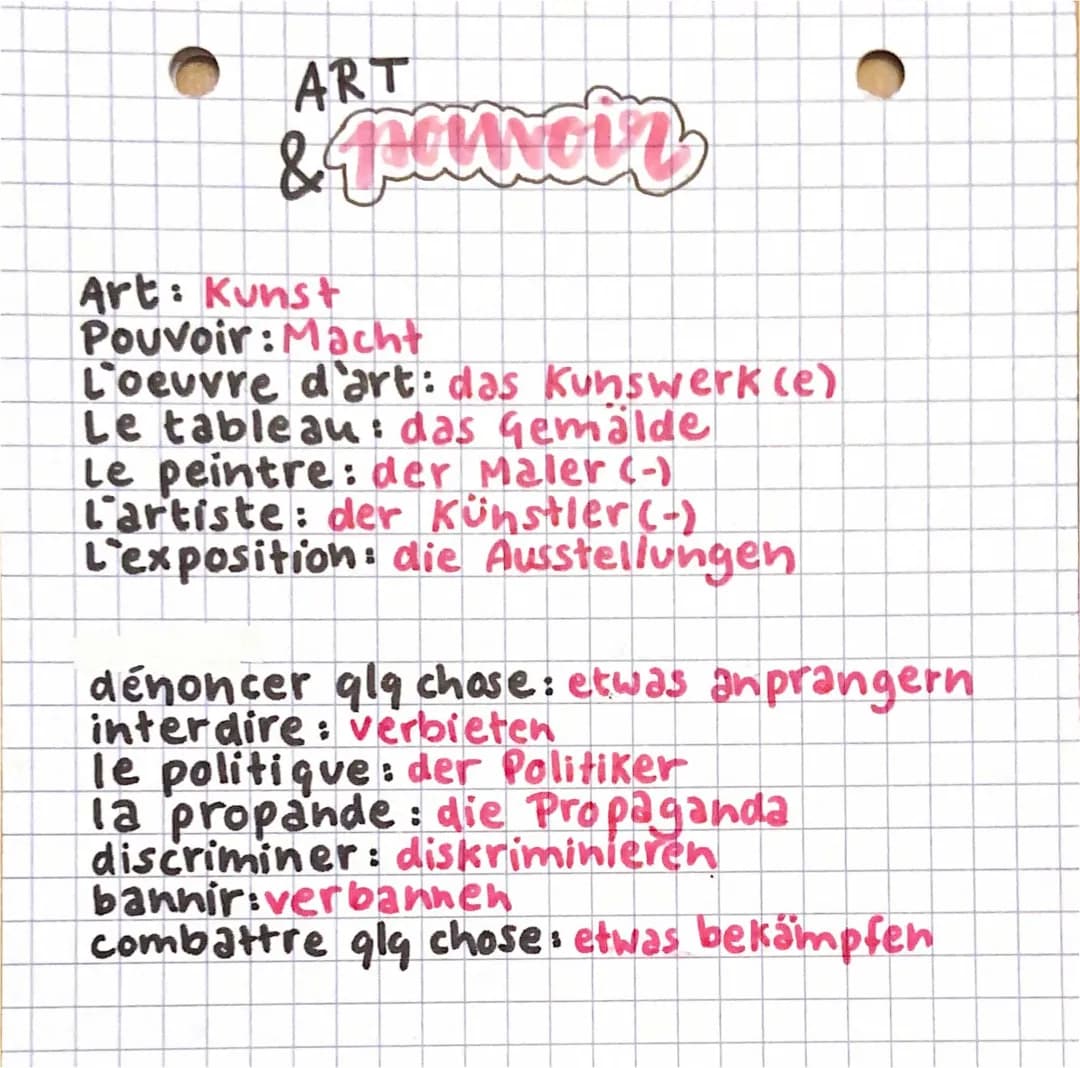 ART
& pouvoir
Art: Kunst
Pouvoir: Macht
L'oeuvre d'art: das Kunswerk (e)
Le tableau: das Gemälde
Le peintre: der Maler (-)
L'artiste: der Künstler (-)
L'exposition: die Ausstellungen
dénoncer qlq chose: etwas anprangern
interdire: verbieten
le politique: der Politiker
la propande: die Propaganda
discriminer: diskriminieren
bannir: verbannen
combattre qlq chose: etwas bekämpfen